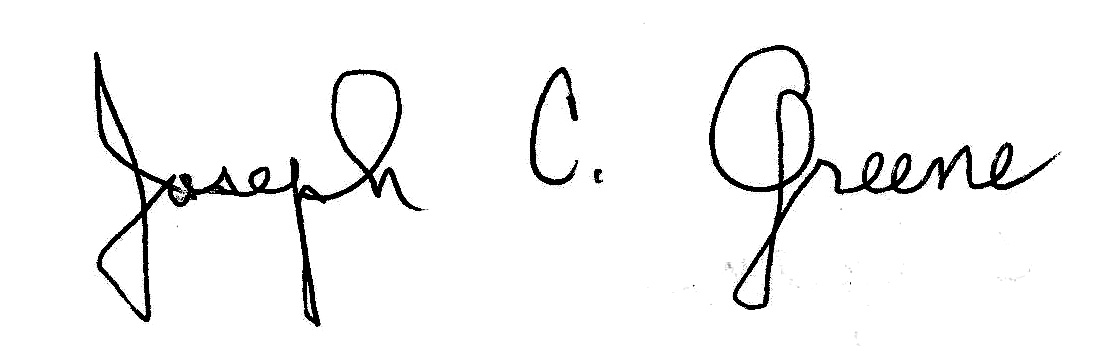 Joseph C. Greene